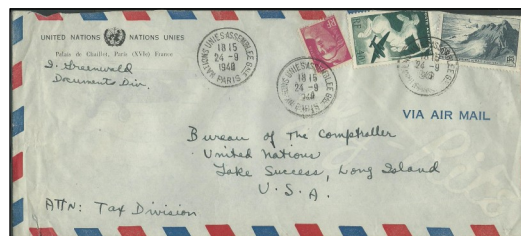 UNITED NATIONS NATIONS UNIES
Palais de Chaillot, Paris (XVIe) France
I. Greenwald
Documents Div.
NATIONS UNIES ASSEMBLEE GLE
18 15
24 - 9
1948
PARIS
NATIONS UNIES ASSEMBLEE GLE
18 15
24 - 9
1948
PARIS
18 15
24 - 9
VIA AIR MAIL
Bureau of The Comptroller
United Nations
Lake Success, Long Island
U. S. A.
ATTN: Tax Division